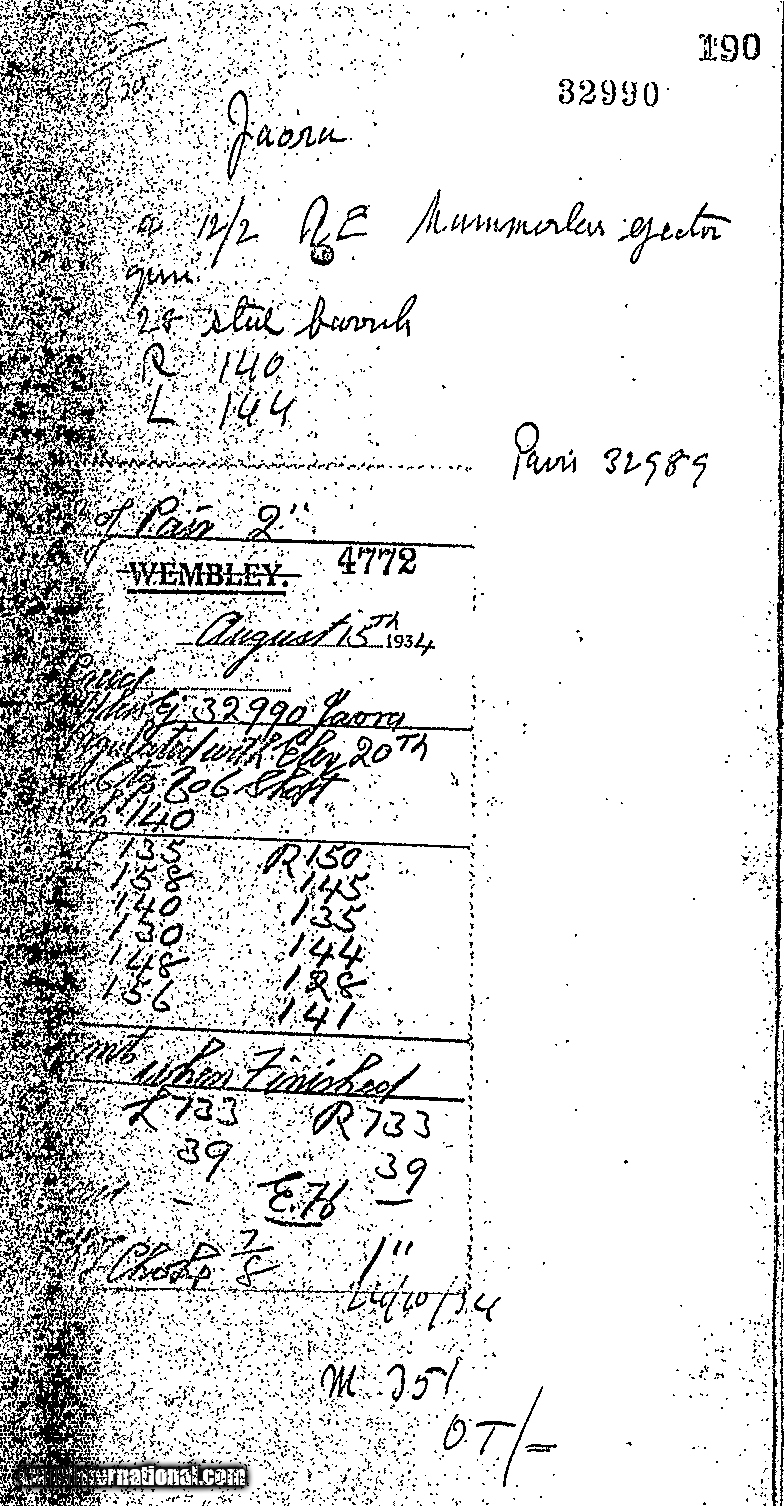 190
32990
Jaora
a 12/2 R E Hammerless ejector
gun
28 steel barrels
R 140
L 144
Pair 32989
of Pair 2"
WEMBLEY. 4772
August 15th 1934
Ej 32990 Jaora
with Eley 20th
206 Shot
140
135 R 150
158 145
140 135
130 144
148 128
156 141
when Finished
L 733 R 733
39 39
E. 76
Choke 7/8 1"
/10/34
M 351
OT/=
international.com